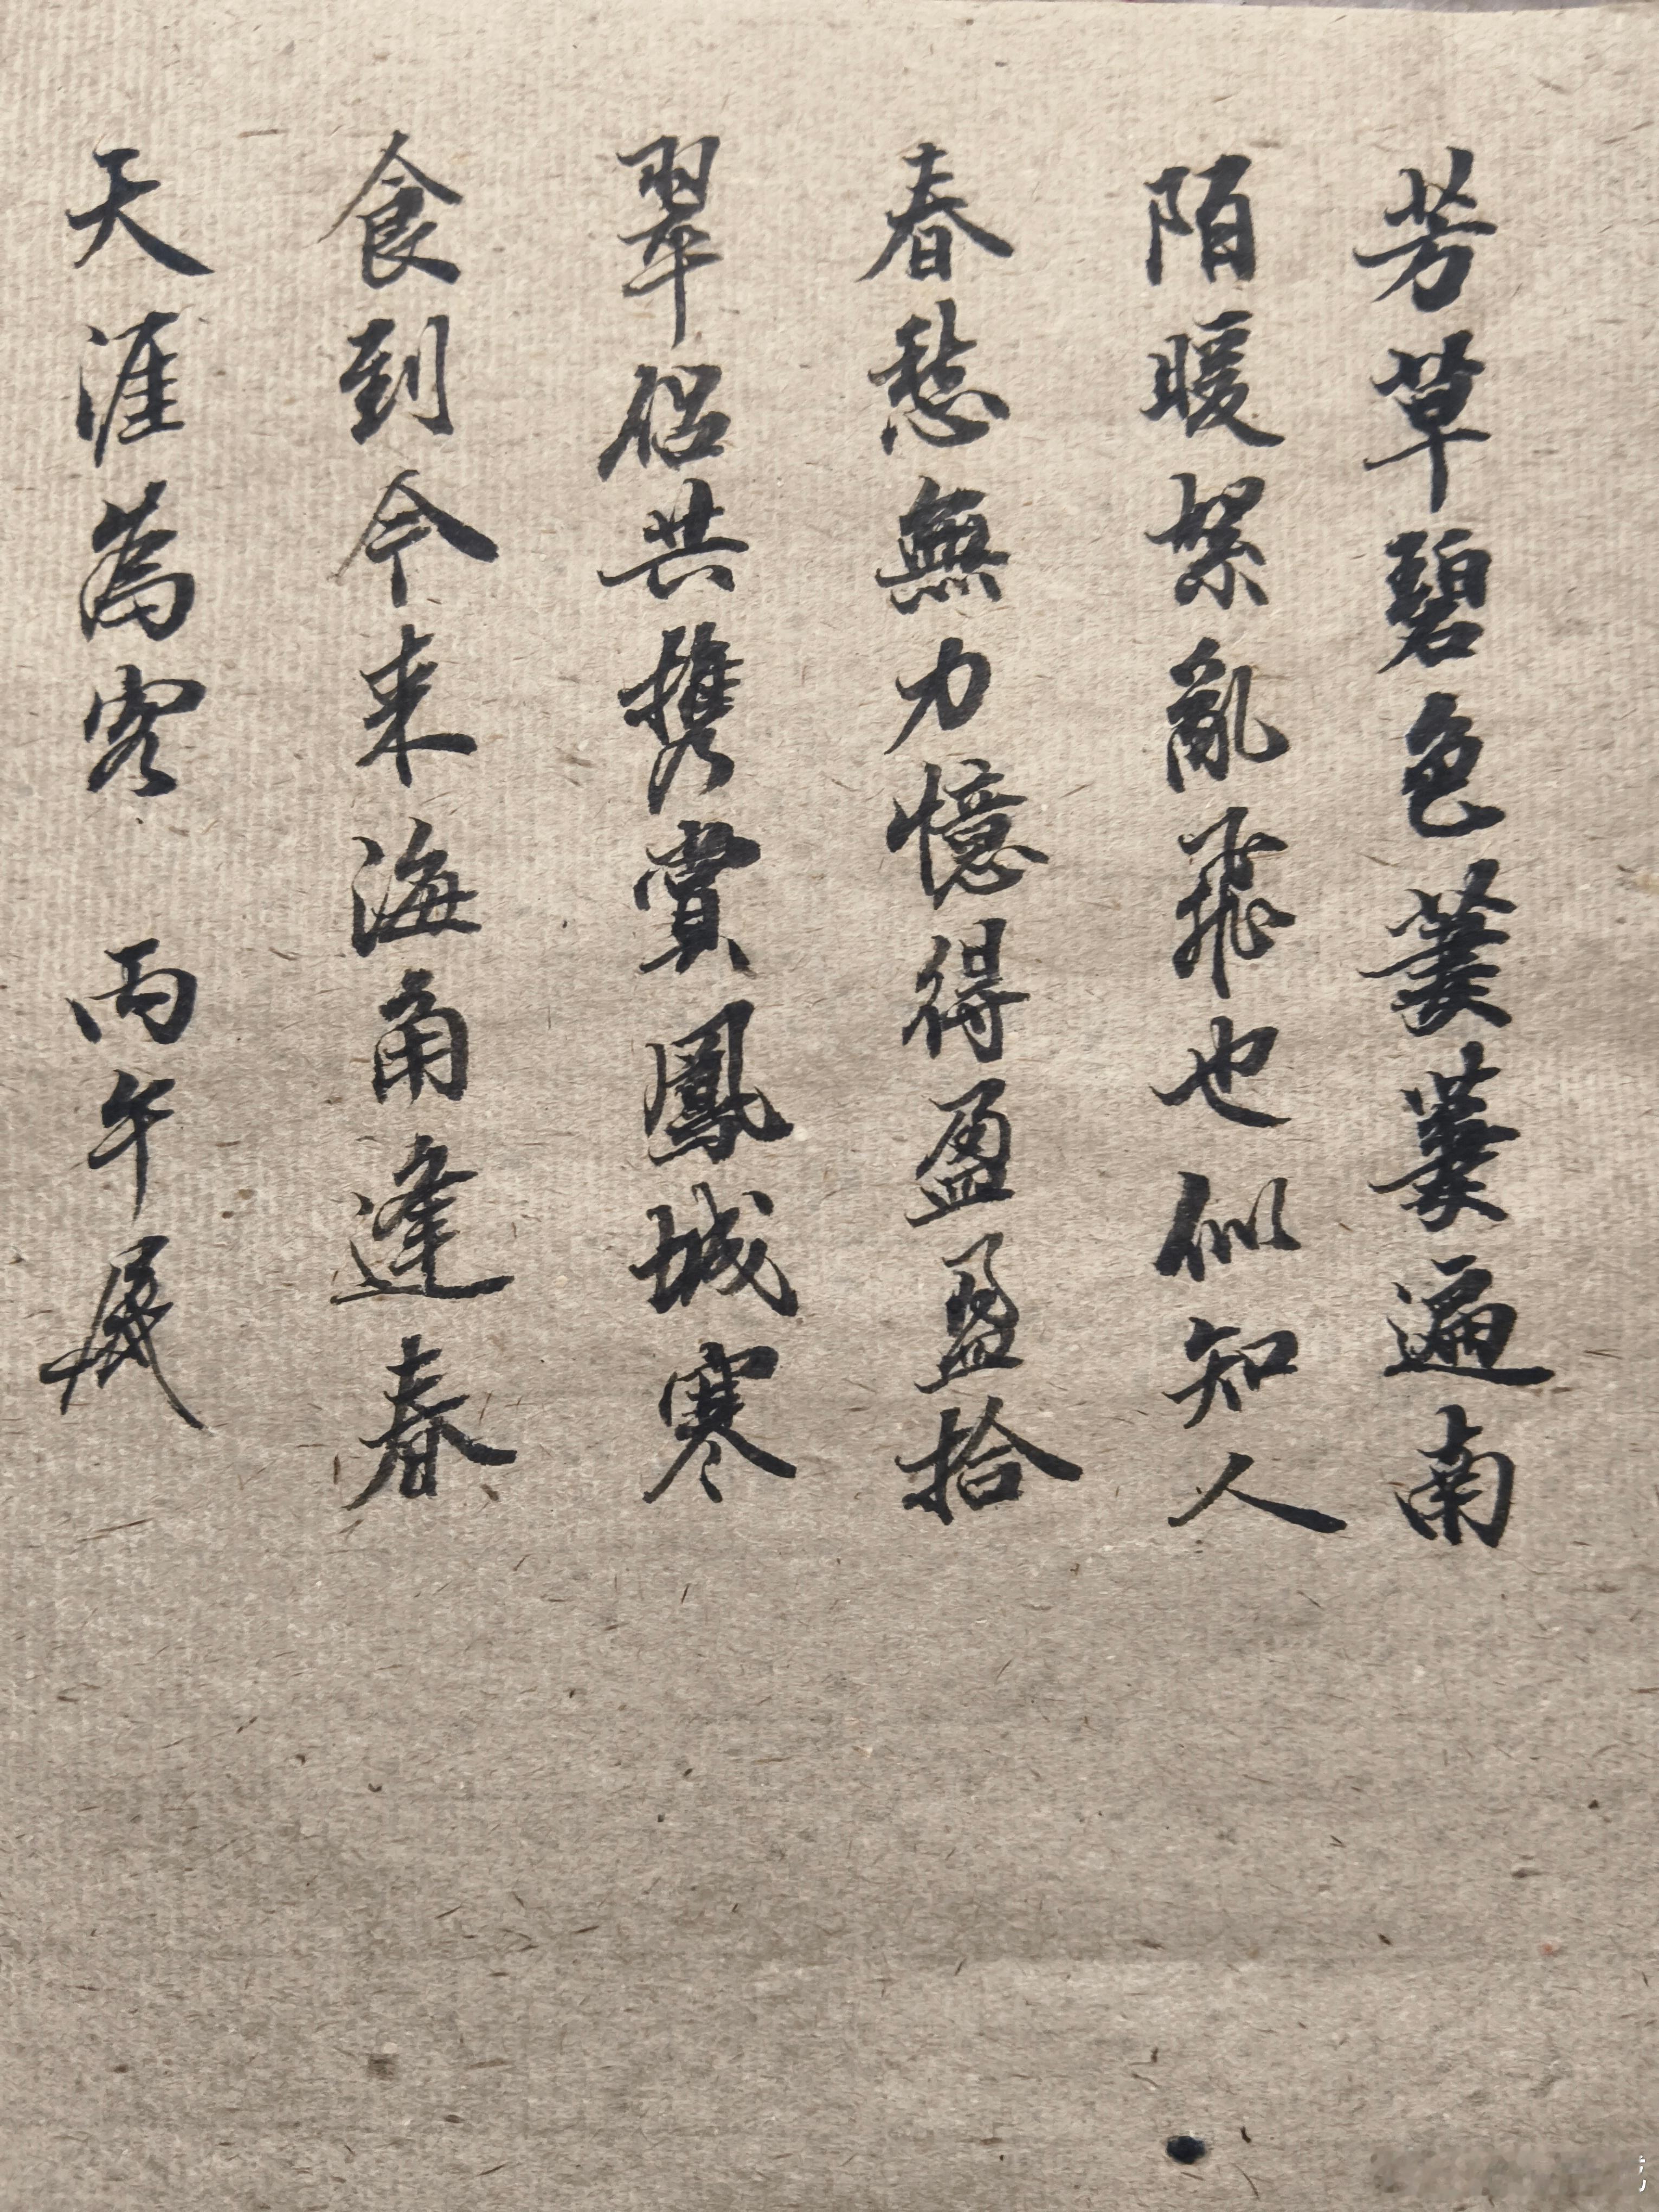 芳草碧色萋萋遍南
陌暖絮亂飛也似知人
春愁無力憶得盈盈拾
翠侶共携賞鳳城寒
食到今来海角逢春
天涯為客 丙午